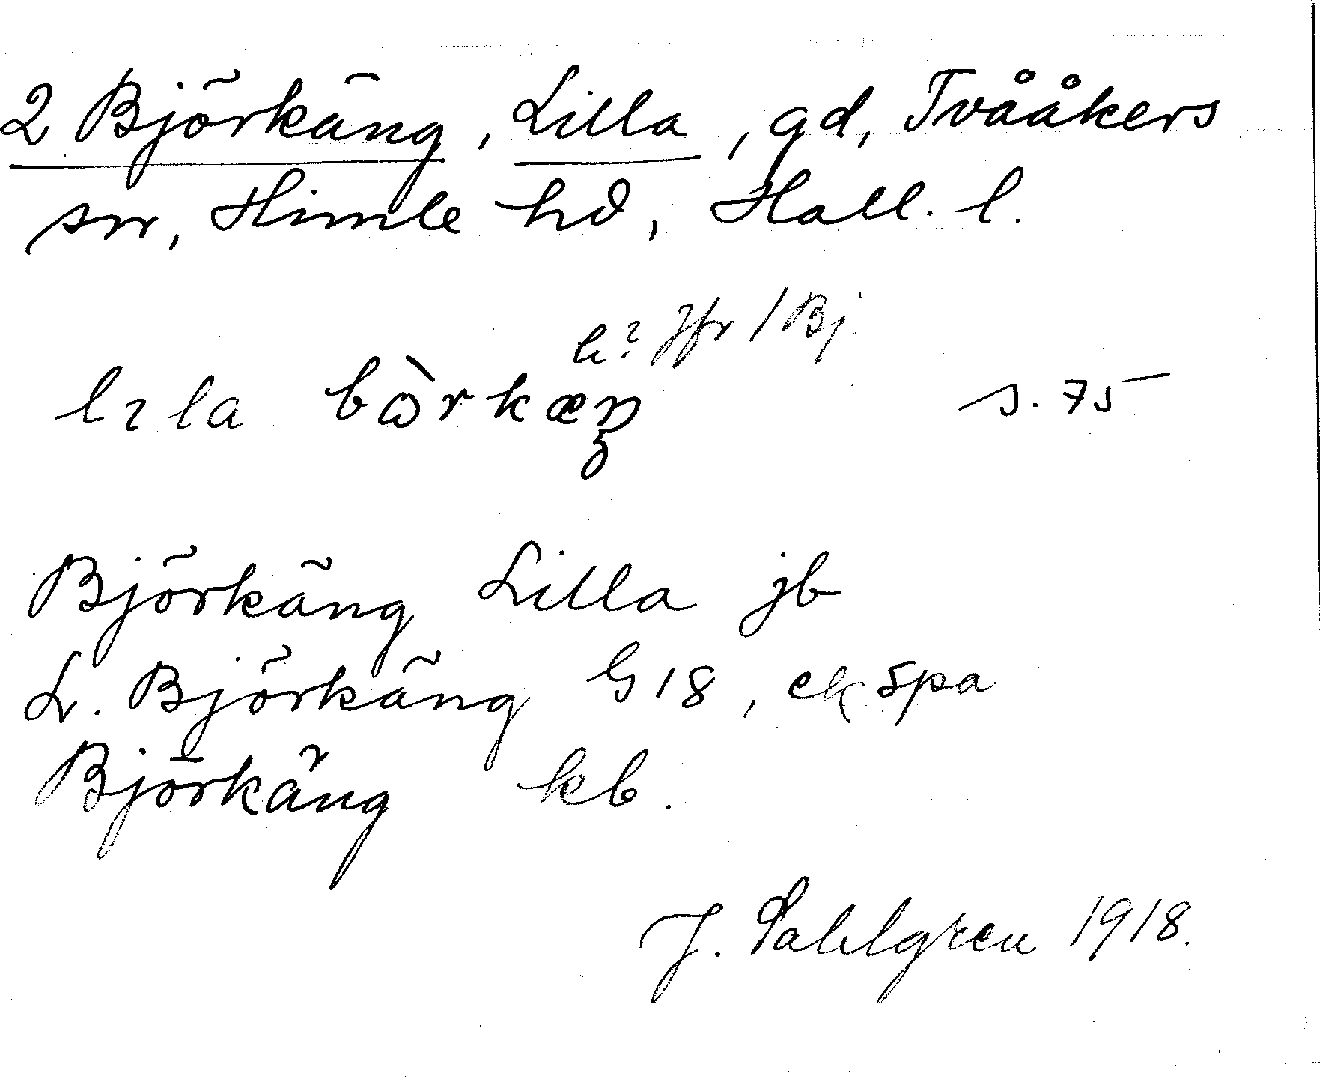 2 Björkäng, Lilla, gd, Tvååkers
sn, Himle hd, Hall. l.
h? Jfr 1 Bj.
lɿla bɷ̀rkæŋ s. 75
Björkäng Lilla jb
L. Björkäng G18, ekspa
Björkäng kb.
J. Sahlgren 1918.